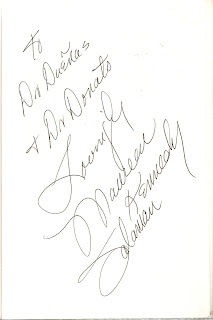 To
Dr Dueñas
& Dr Donato
Lovingly
Maureen
Kennedy
Salaman